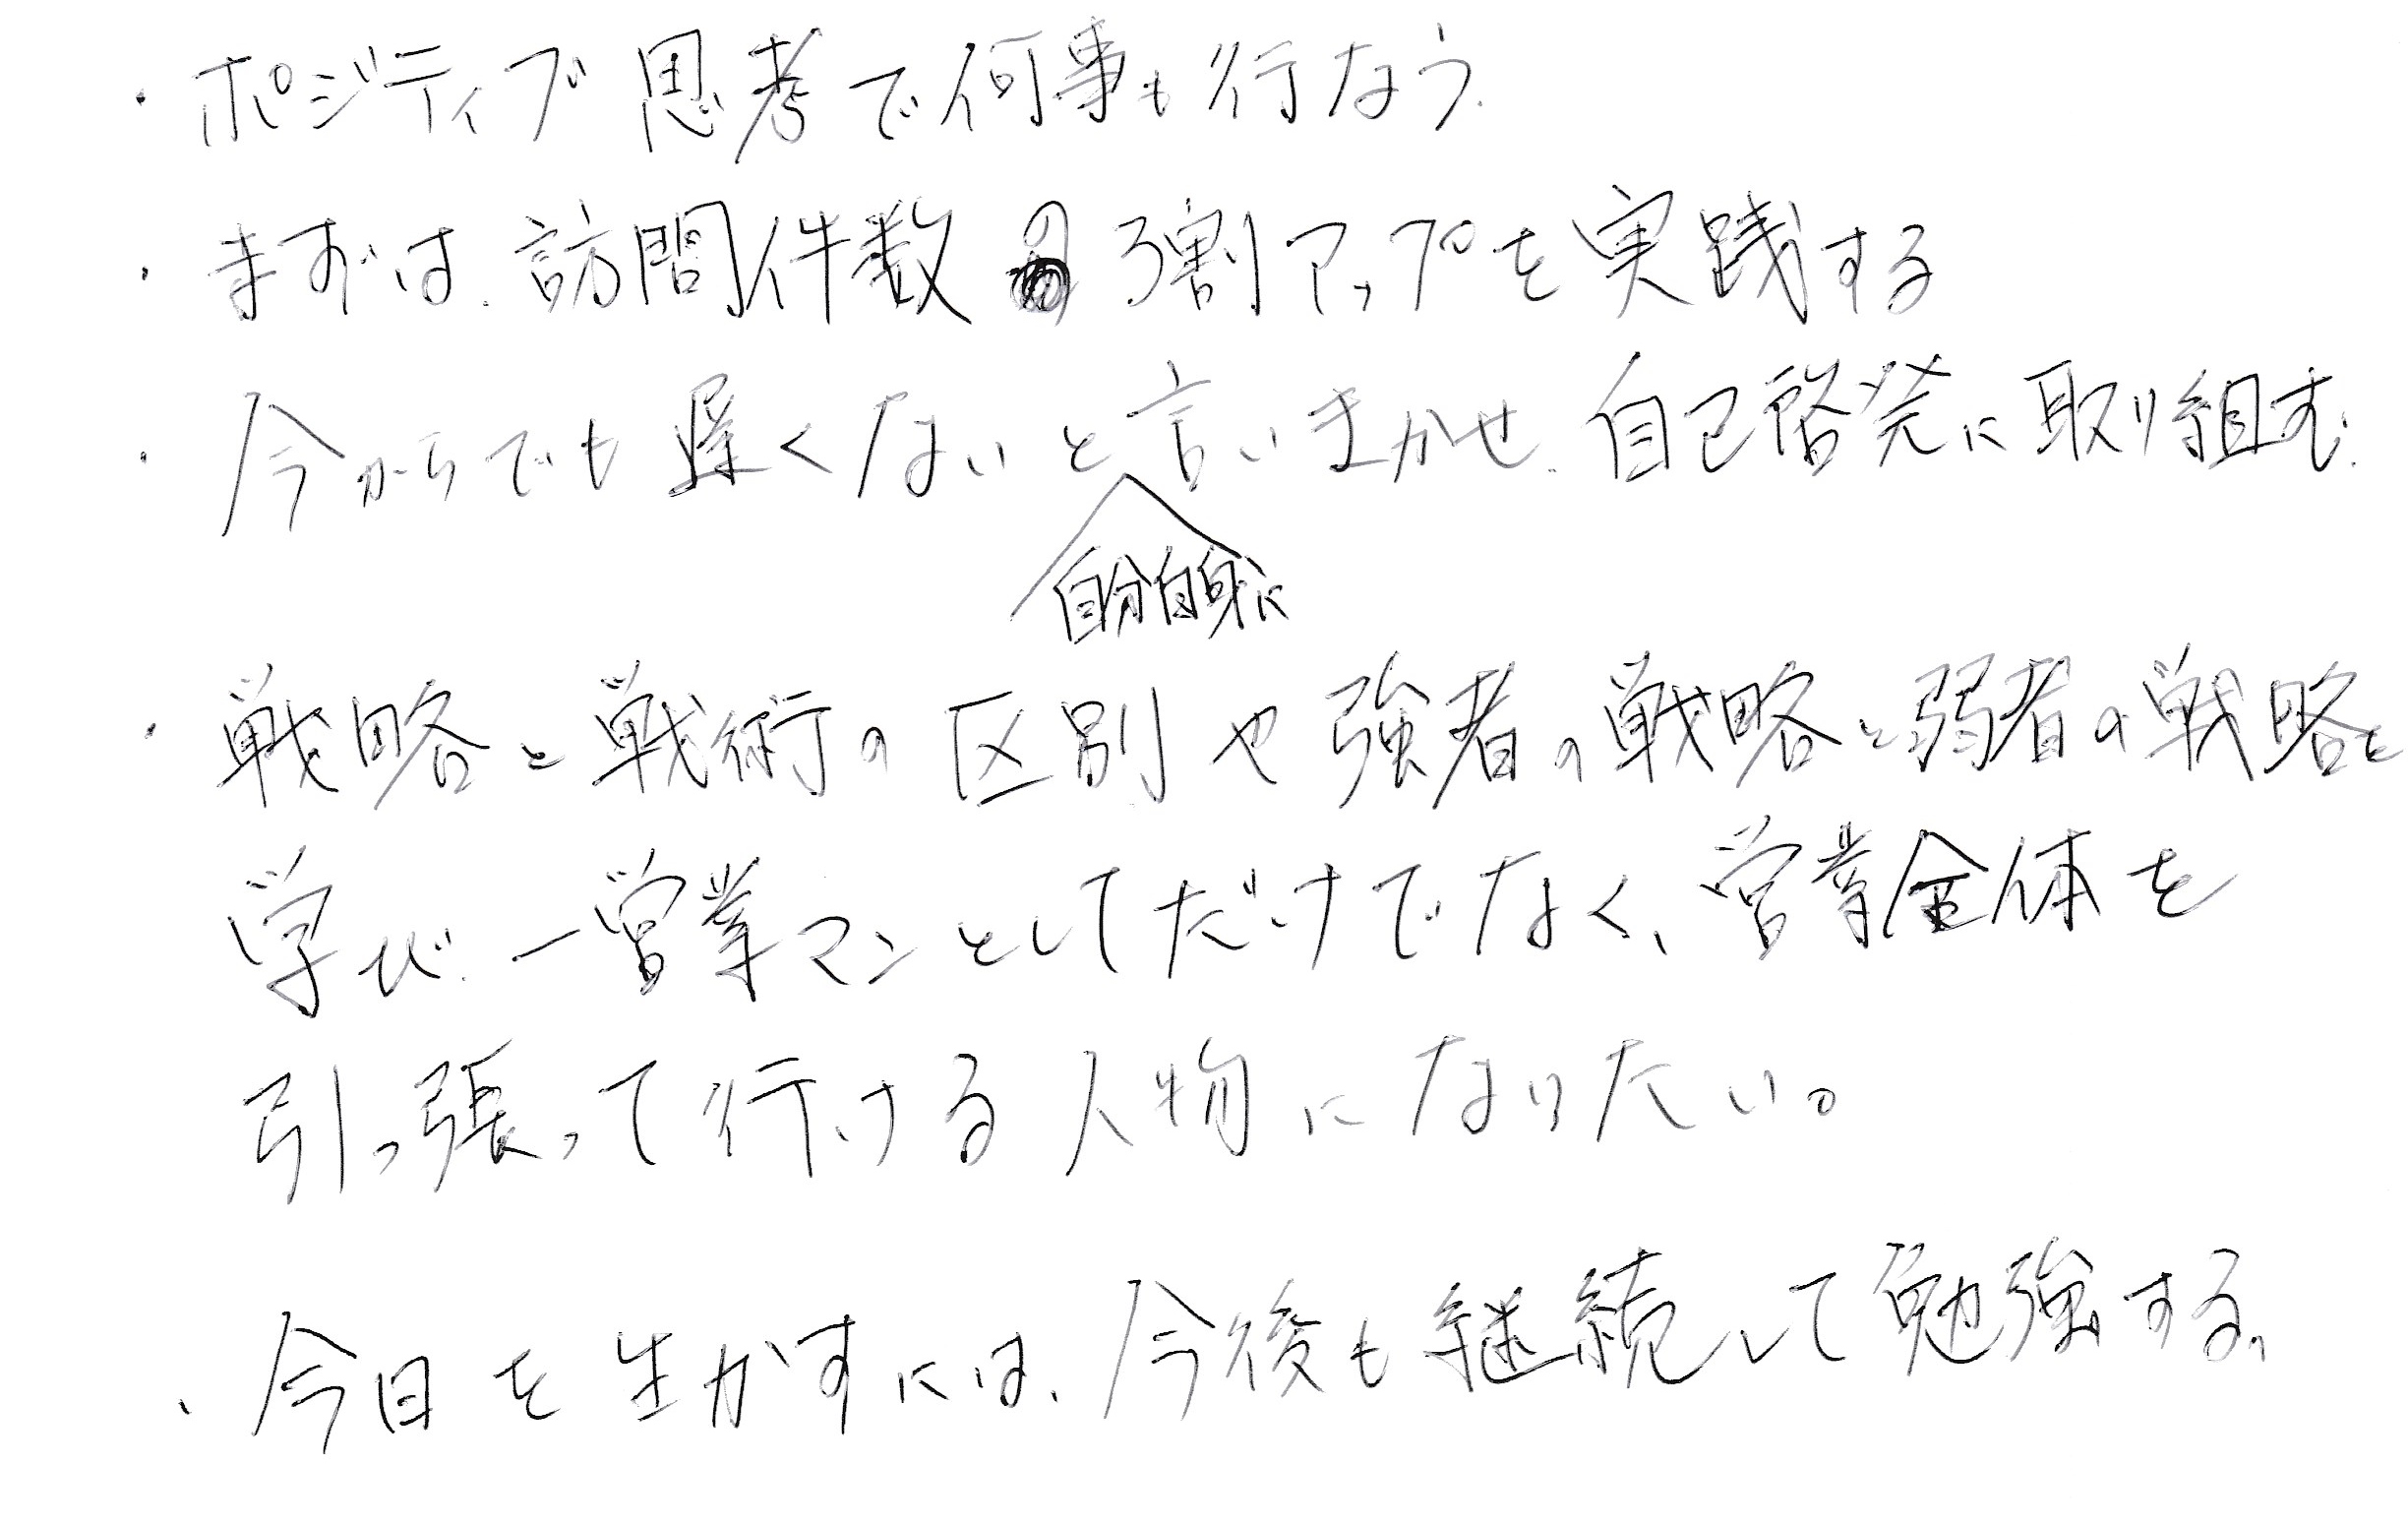 ・ポジティブ思考で何事も行なう.
・まずは、訪問件数の3割アップを実践する
・今からでも遅くないと言いまかせ、自己啓発に取り組む.
自分自身に
・戦略と戦術の区別や強者の戦略と弱者の戦略を
学び、一営業マンとしてだけでなく、営業全体を
引っ張って行ける人物になりたい。
・今日を生かすには、今後も継続して勉強する。